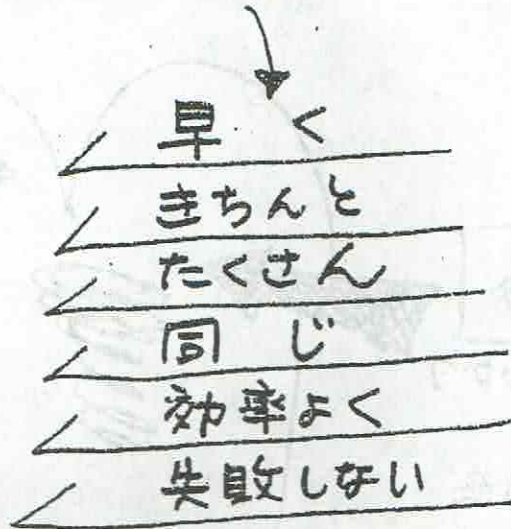 早く
きちんと
たくさん
同じ
効率よく
失敗しない